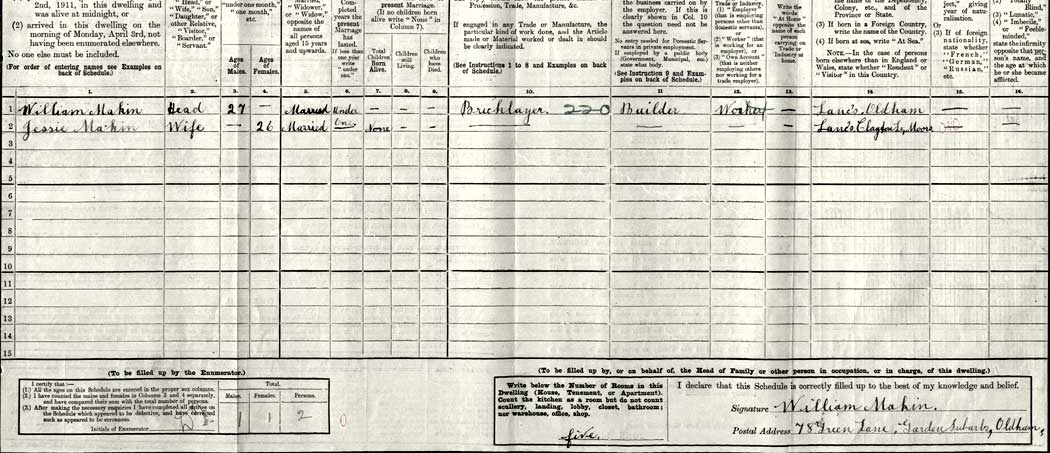 2nd, 1911, in this dwelling and
was alive at midnight, or
(2) arrived in this dwelling on the
morning of Monday, April 3rd, not
having been enumerated elsewhere.
No one else must be included.
(For order of entering names see Examples on
back of Schedule.)
"Head," or
"Wife," "Son,"
"Daughter," or
other Relative,
"Visitor,"
"Boarder," or
"Servant."
"under one month,"
"one month,"
etc.
Ages
of
Males.
Ages
of
Females.
Married,
"Widower,"
or "Widow,"
opposite the
names of
all persons
aged 15 years
and upwards.
Com-
pleted
years the
present
Marriage
has
lasted.
If less than
one year
write
"under
one."
present Marriage.
(If no children born
alive write "None" in
Column 7).
Total
Children
Born
Alive.
Children
still
Living.
Children
who
have
Died.
Profession, Trade, Manufacture, &c.
If engaged in any Trade or Manufacture, the
particular kind of work done, and the Article
made or Material worked or dealt in should
be clearly indicated.
(See Instructions 1 to 8 and Examples on
back of Schedule.)
the business carried on by
the employer. If this is
clearly shown in Col. 10
the question need not be
answered here.
No entry needed for Domestic Ser-
vants in private employment.
If employed by a public body
(Government, Municipal, etc.)
state what body.
(See Instruction 9 and Exam-
ples on back of Schedule.)
Trade or Industry,
(1) "Employer"
(that is employing
persons other than
domestic servants),
or
(2) "Worker" (that
is working for an
employer), or
(3) "Own Account"
(that is neither
employing others
nor working for a
trade employer).
Write the
words
"At Home"
opposite the
name of each
person
carrying on
Trade or
Industry at
home.
the name of the Dependency,
Colony, etc., and of the
Province or State.
(3) If born in a Foreign Country,
write the name of the Country.
(4) If born at sea, write "At Sea."
NOTE.—In the case of persons
born elsewhere than in England or
Wales, state whether "Resident" or
"Visitor" in this Country.
ject," giving
year of natu-
ralisation.
Or
(3) If of foreign
nationality,
state whether
"French,"
"German,"
"Russian,"
etc.
(2) "Totally
Blind,"
(3) "Lunatic,"
(4) "Imbecile,"
or "Feeble-
minded,"
state the infirmity
opposite that per-
son's name, and
the age at which
he or she became
afflicted.
1. 2. 3. 4. 5. 6. 7. 8. 9. 10. 11 12. 13. 14 15. 16.
1 William Makin Head 27 — Married Under — — — Bricklayer. 220 Builder Worker — Lancs. Oldham — —
2 Jessie Makin Wife — 26 Married One None — — — — — — Lancs. Clayton Le Moors
3
4
5
6
7
8
9
10
11
12
13
14
15
(To be filled up by the Enumerator.)
I certify that:—
(1.) All the ages on this Schedule are entered in the proper sex columns.
(2.) I have counted the males and females in Columns 3 and 4 separately,
and have compared their sum with the total number of persons.
(3.) After making the necessary enquiries I have completed all entries on
the Schedule which appeared to be defective, and have corrected
such as appeared to be erroneous.
Initials of Enumerator
Total.
Males. Females. Persons.
1 1 2
0
(To be filled up by, or on behalf of, the Head of Family or other person in occupation, or in charge, of this dwelling.)
Write below the Number of Rooms in this
Dwelling (House, Tenement, or Apartment).
Count the kitchen as a room but do not count
scullery, landing, lobby, closet, bathroom;
nor warehouse, office, shop.
five.
I declare that this Schedule is correctly filled up to the best of my knowledge and belief.
Signature William Makin.
Postal Address 78 Green Lane, Garden Suburbs, Oldham,